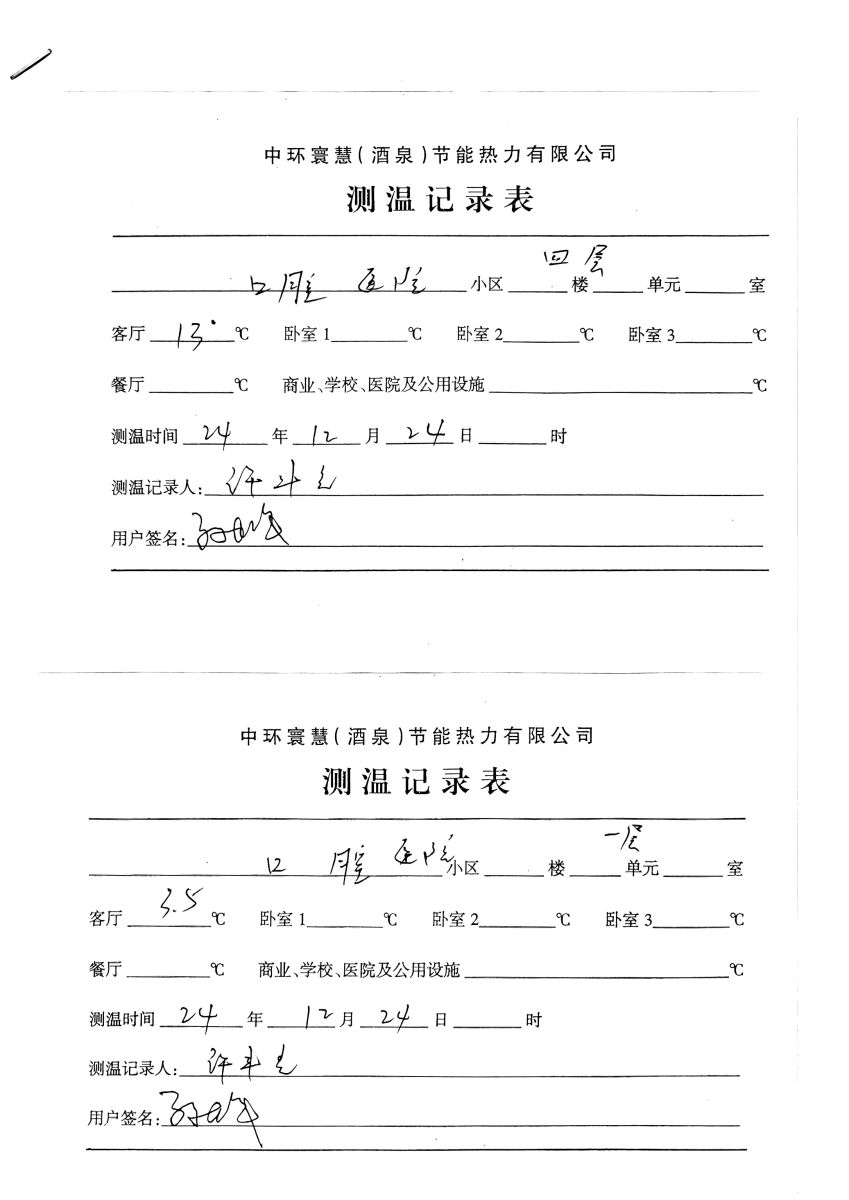 中环寰慧(酒泉)节能热力有限公司
测温记录表
口腔医院小区 四层楼 单元 室
客厅 13°℃ 卧室1 ℃ 卧室2 ℃ 卧室3 ℃
餐厅 ℃ 商业、学校、医院及公用设施 ℃
测温时间 24 年 12 月 24 日 时
测温记录人: 许
用户签名:
中环寰慧(酒泉)节能热力有限公司
测温记录表
口腔医院小区 楼 一层 单元 室
客厅 3.5 ℃ 卧室1 ℃ 卧室2 ℃ 卧室3 ℃
餐厅 ℃ 商业、学校、医院及公用设施 ℃
测温时间 24 年 12 月 24 日 时
测温记录人: 许
用户签名: